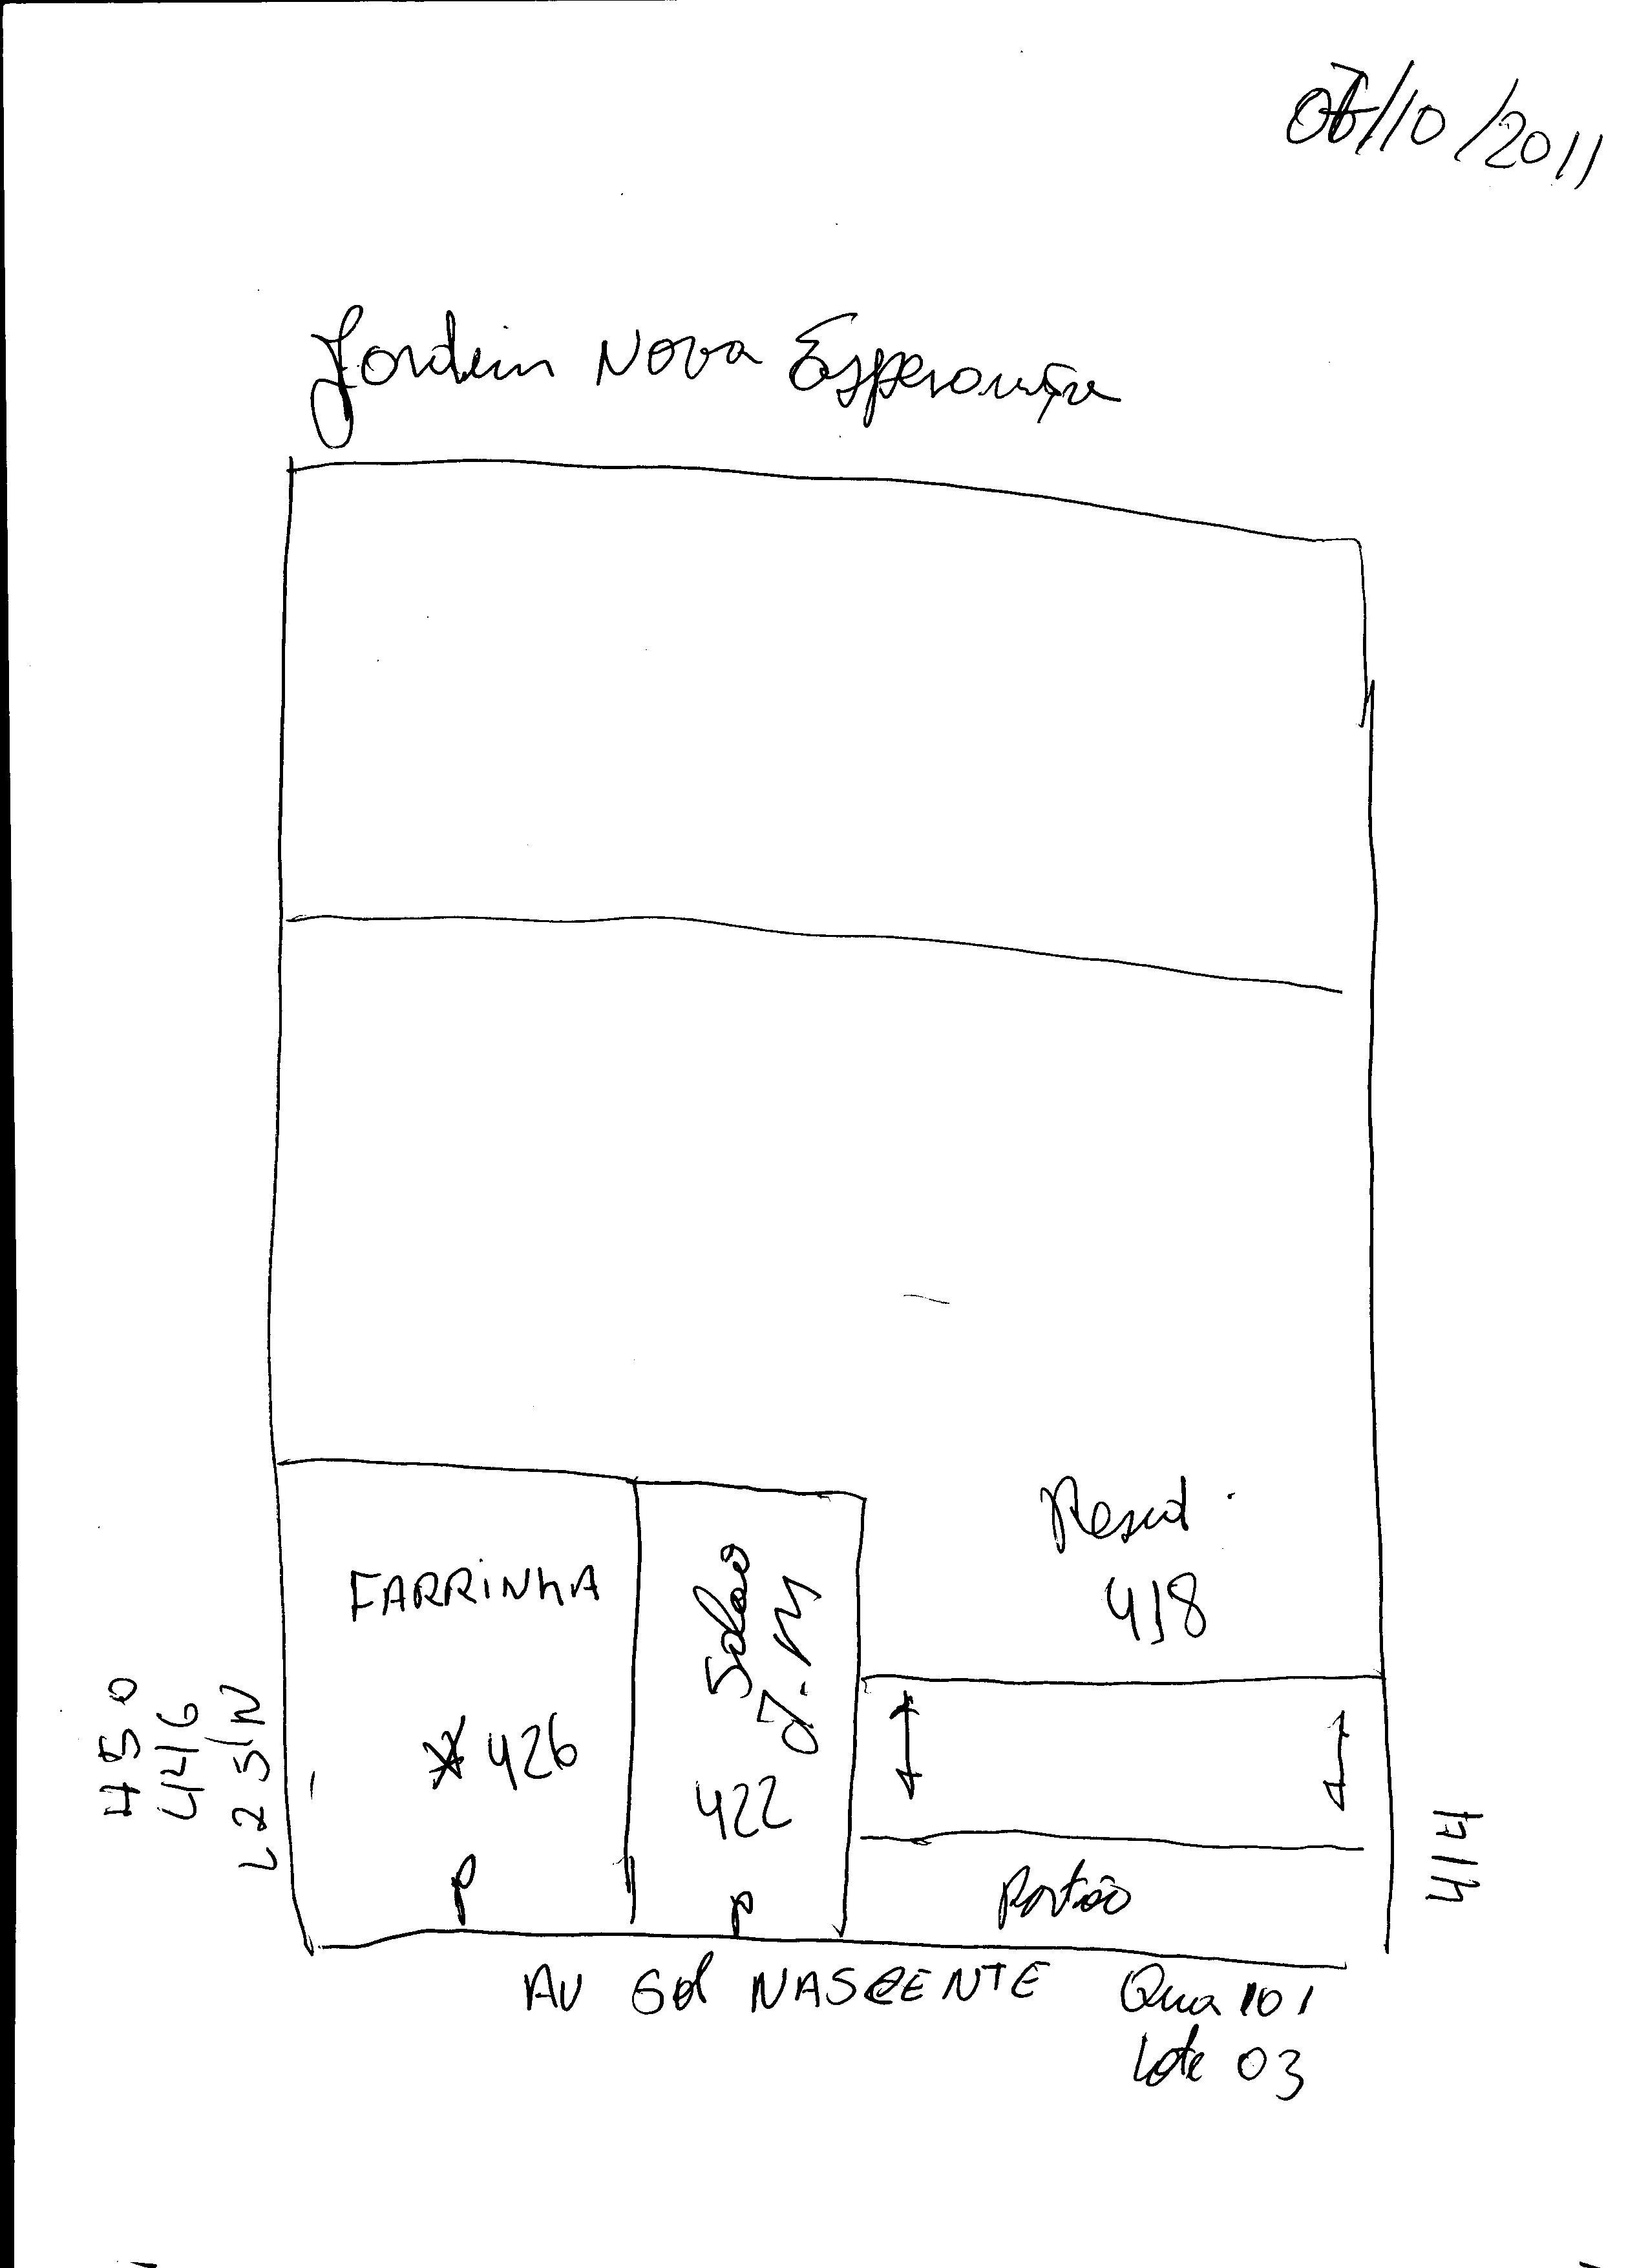 /10/2011
Jardim Nova Esperança
Resid.
418
FARRINHA
Salão
J.M
426
422
450
446
L 2 S/N
414
Portão
P
P
AV Sol NASCENTE Qua 101
Lote 03